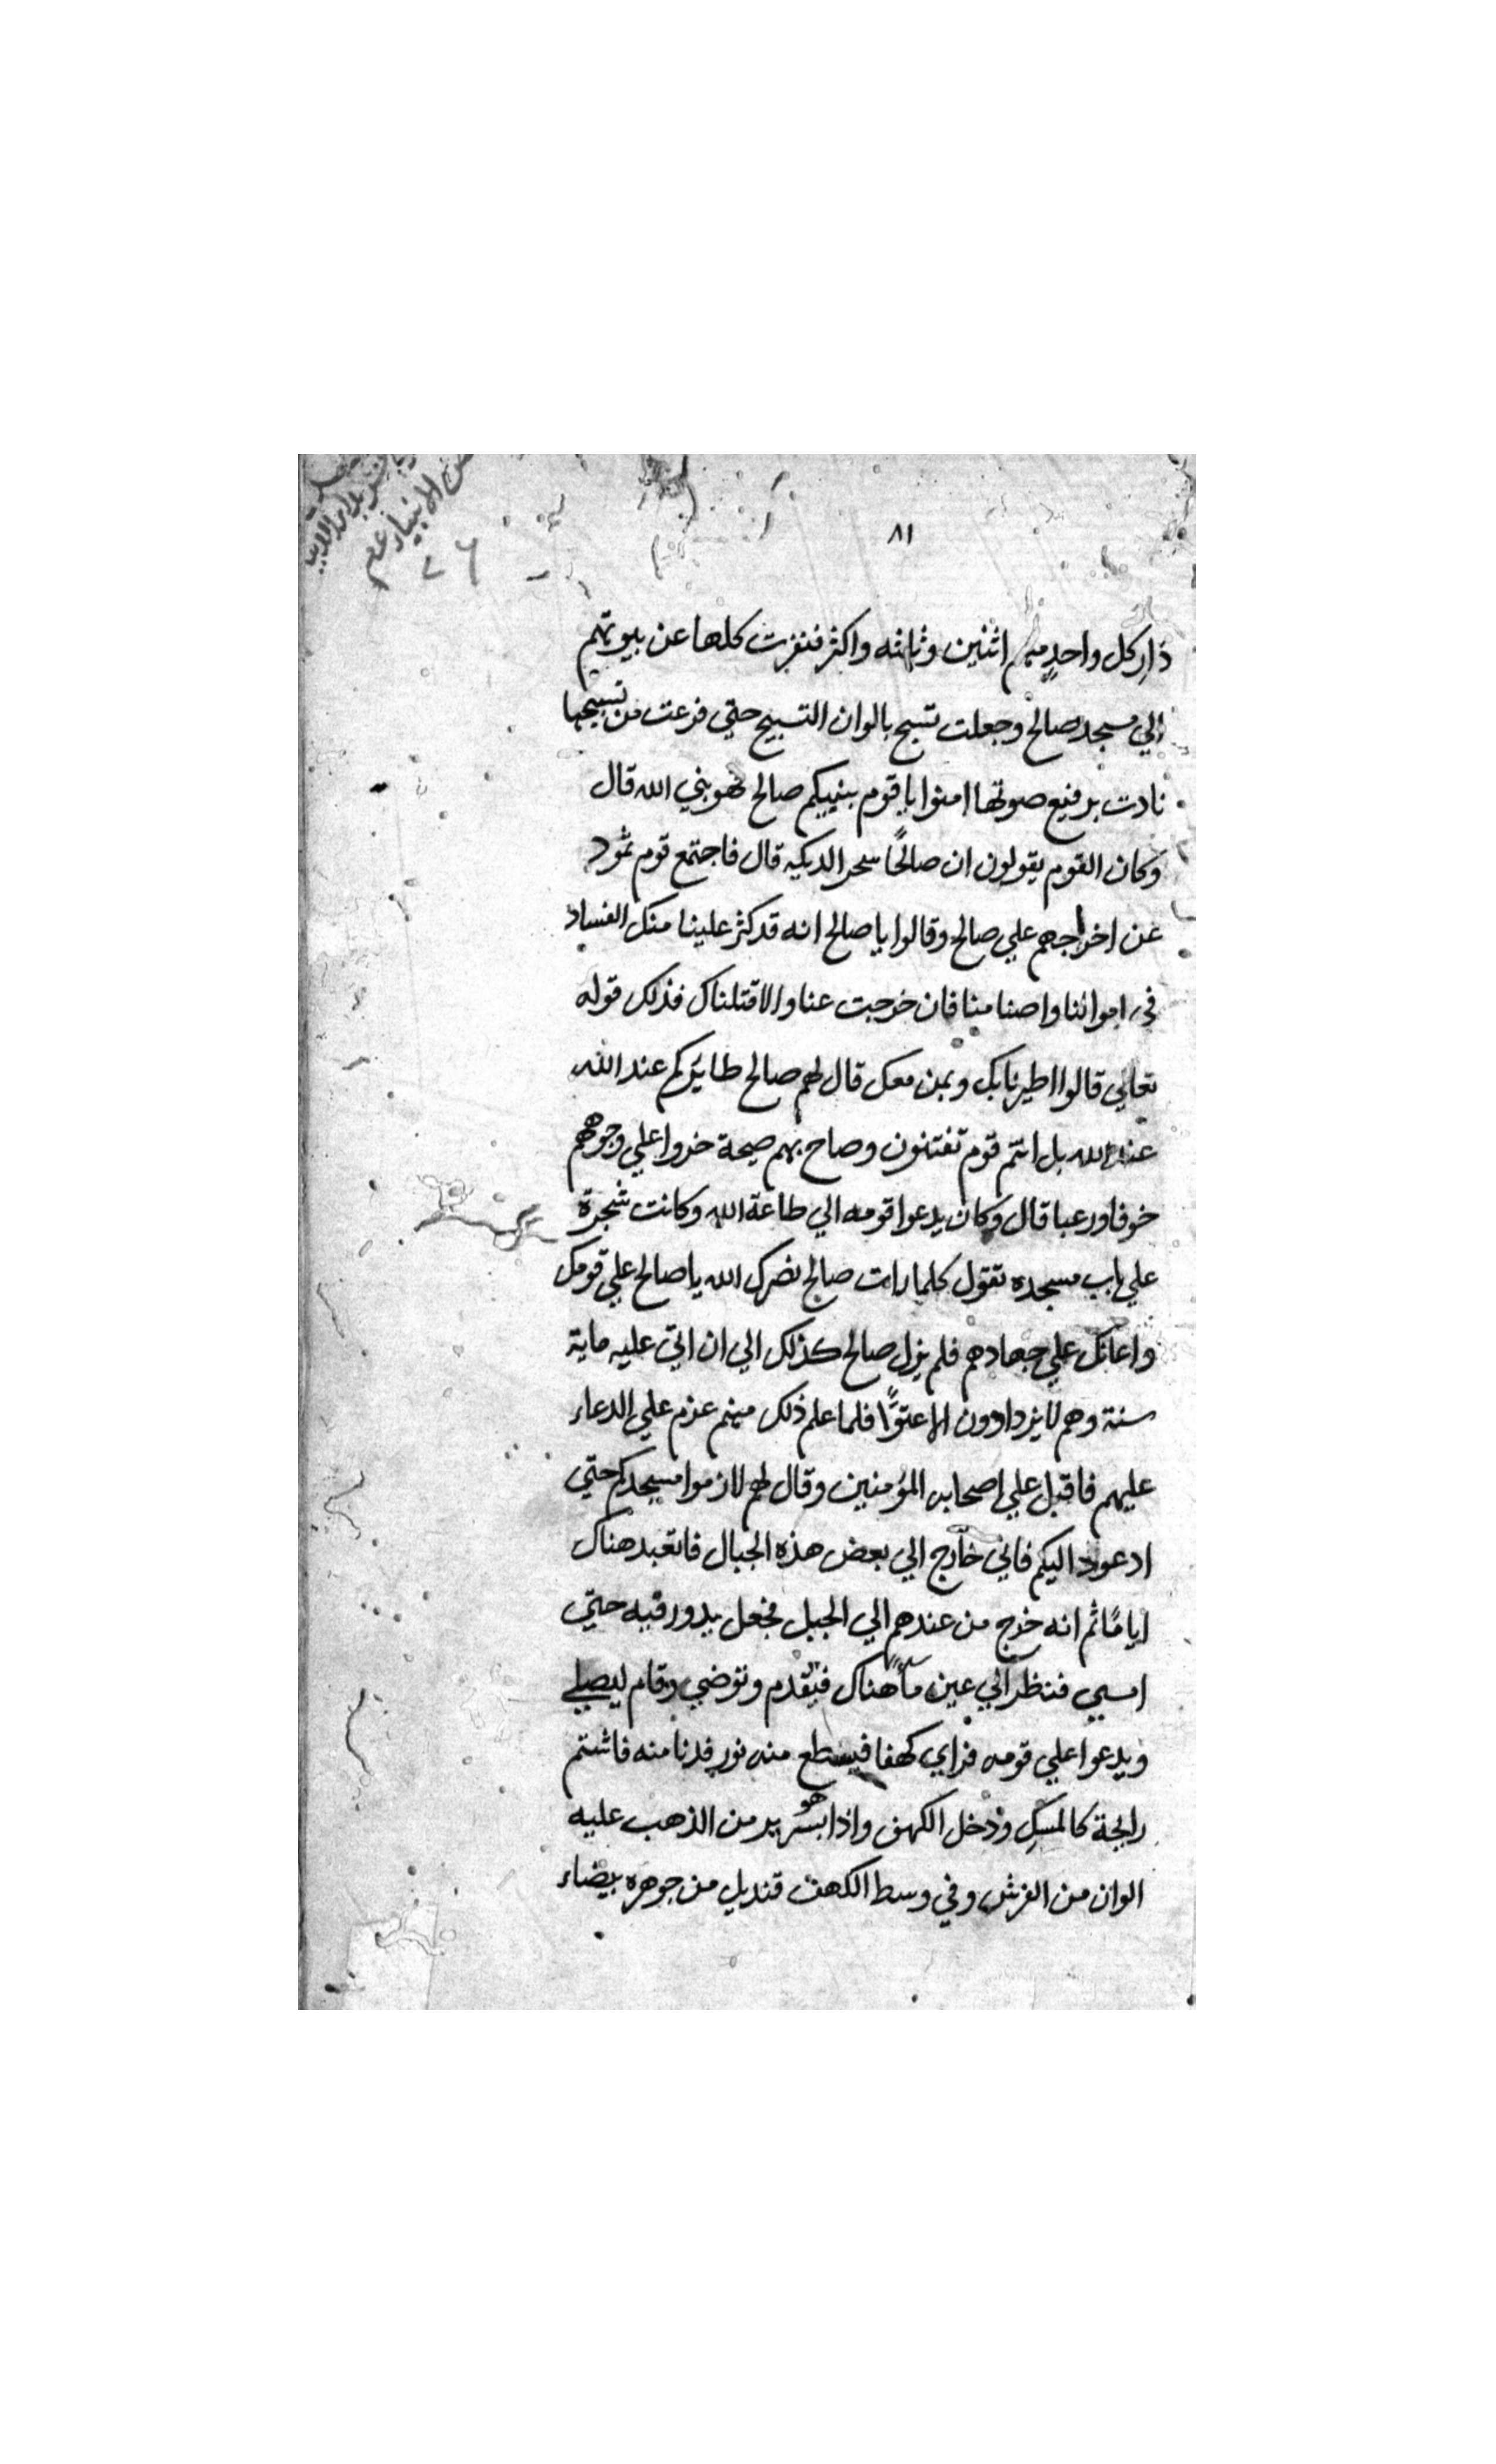 ٨١
دار كل واحدٍ منهم اثنين وثلثه واكثر فنفرت كلها عن بيوتهم
الي مسجد صالح وجعلت تسبح بالوان التسبيح حتي فرعت من تسبيحها
نادت برفيع صوتها امنوا يا قوم بنبيكم صالح فهو بني الله قال
وكان القوم يقولون ان صالحًا سحر الديكه قال فاجتمع قوم ثمود
عن اخراجهم علي صالح وقالوا يا صالح انه قد كثر علينا منك الفساد
في امواتنا واصنامنا فان خرجت عنا والا قتلناك فذلك قوله
تعالي قالوا اطيرنا بك وبمن معك قال لهم صالح طايركم عند الله
عند الله بل انتم قوم تفتنون وصاح بهم صيحة خروا علي وجوههم
خوفا ورعبا قال وكان يدعوا قومه الي طاعة الله وكانت شجرة
علي باب مسجده تقول كلما رات صالح نصرك الله يا صالح علي قومك
واعانك علي جهادهم فلم يزل صالح كذلك الي ان اتي عليه ماية
سنة وهم لا يزدادون الا عتوًّا فلما علم ذلك منهم عزم علي الدعاء
عليهم فاقبل علي اصحابه المؤمنين وقال لهم لازموا مسجدكم حتي
ادعود اليكم فاني خارج الي بعض هذه الجبال فاتعبد هناك
ايامًا ثم انه خرج من عندهم الي الجبل فجعل يدور فيه حتي
امسي فنظر الي عين ماًء هناك فتقدم وتوضي وقام ليصلي
ويدعوا علي قومه فراي كهفا فيسطع منه نور فدنا منه فاشتم
رايحة كالمسك ودخل الكهف واذا هو بسرير من الذهب عليه
الوان من الفرش وفي وسط الكهف قنديل من جوهره بيضاء